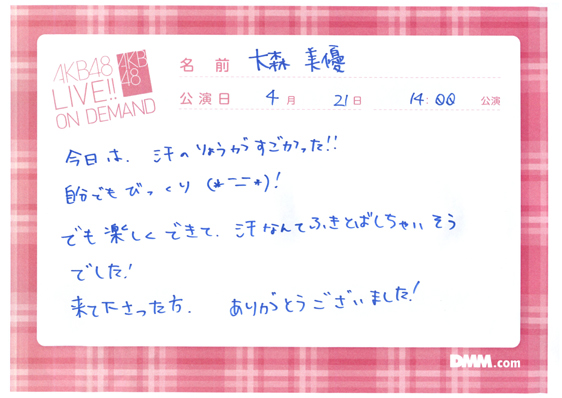 AKB48
LIVE!!
ON DEMAND
AKB
48
名 前 大森 美優
公演日 4月 21日 14:00 公演
今日は、汗のりょうがすごかった!!
自分でもびっくり (*ニニ*)!
でも楽しくできて、汗なんてふきとばしちゃいそう
でした!
来て下さった方、 ありがとうございました!
DMM.com